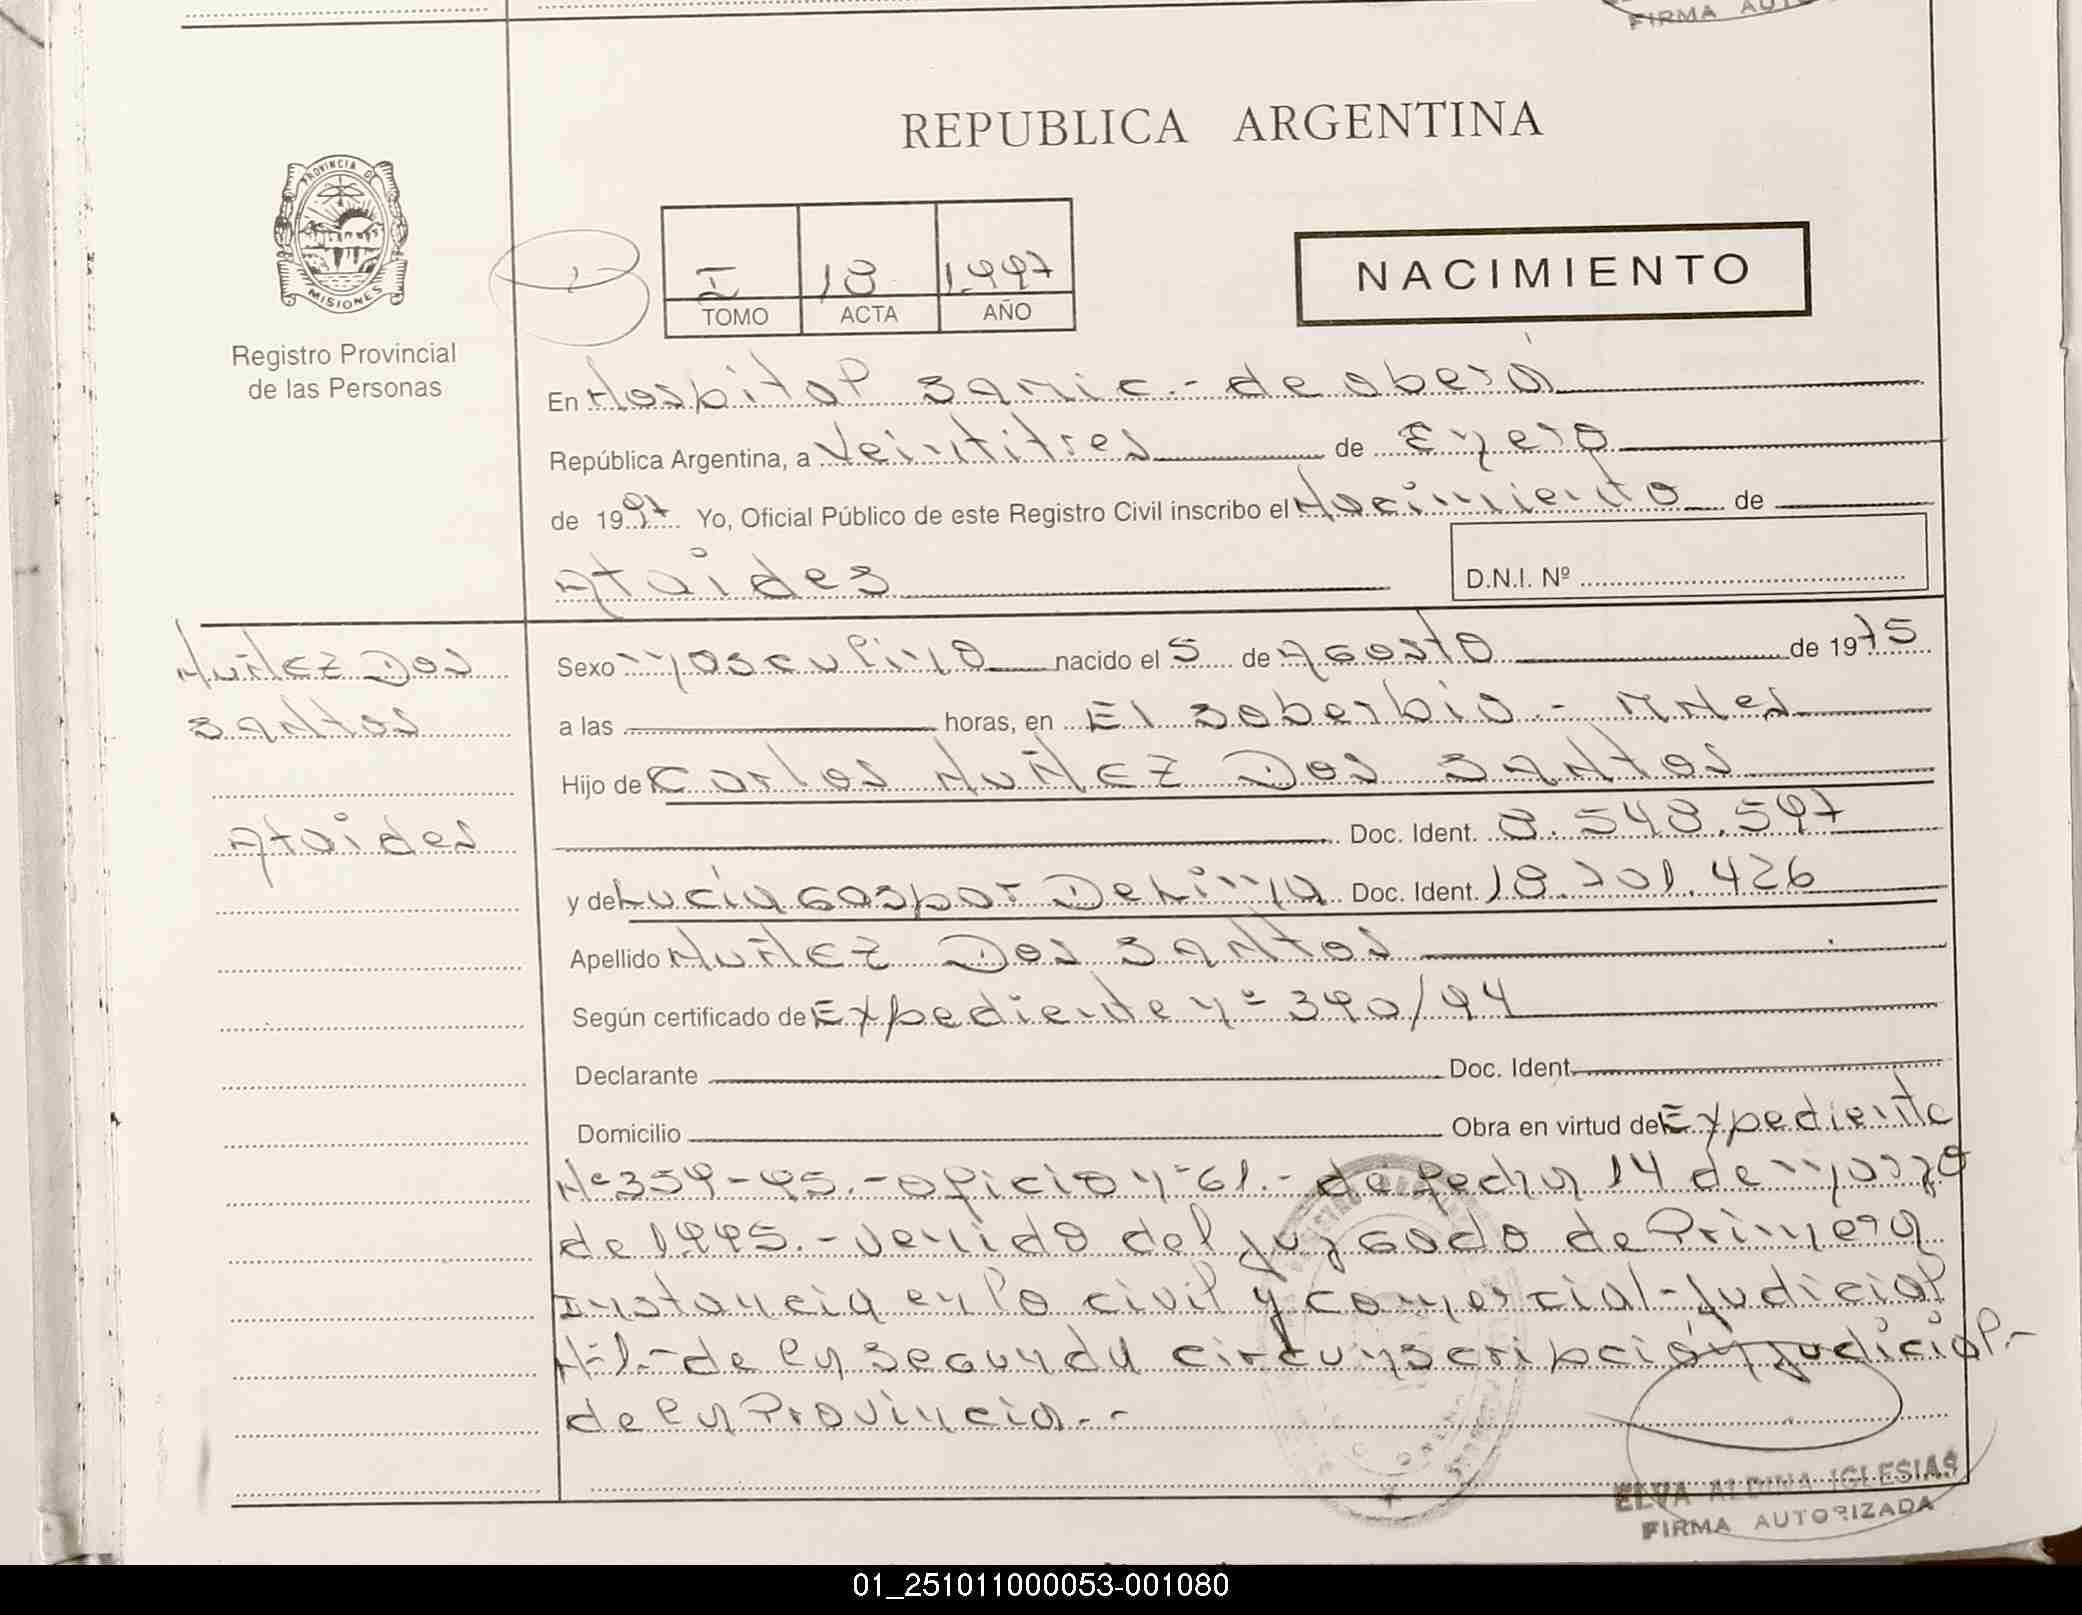 FIRMA AU
REPUBLICA ARGENTINA
PROVINCIA D
MISIONES
Registro Provincial
de las Personas
I 18 1.997
TOMO ACTA AÑO
NACIMIENTO
En Hospital Samic.- de oberá
República Argentina, a Veintitres de Enero
de 1997 Yo, Oficial Público de este Registro Civil inscribo el Nacimiento de
Ataides
D.N.I. Nº
Nuñez Dos
Santos
Ataides
Sexo masculino nacido el 5 de Agosto de 1975
a las horas, en El Soberbio - Mnes
Hijo de Carlos Nuñez Dos Santos
Doc. Ident. 8.548.597
y de Lucia Gaspar De Lima Doc. Ident. 18.201.426
Apellido Nuñez Dos Santos
Según certificado de Expediente nº 390/94
Declarante Doc. Ident.
Domicilio Obra en virtud de Expediente
Nº 359-95.- oficio nº 61.- de fecha 14 de marzo
de 1.995.- venido del juzgado de Primera
Instancia en lo civil y comercial - Judicial
Nº 1.- de la Segunda circunscripción judicial.-
de la Provincia.-
ELVA ALDINA IGLESIAS
FIRMA AUTORIZADA
01_251011000053-001080